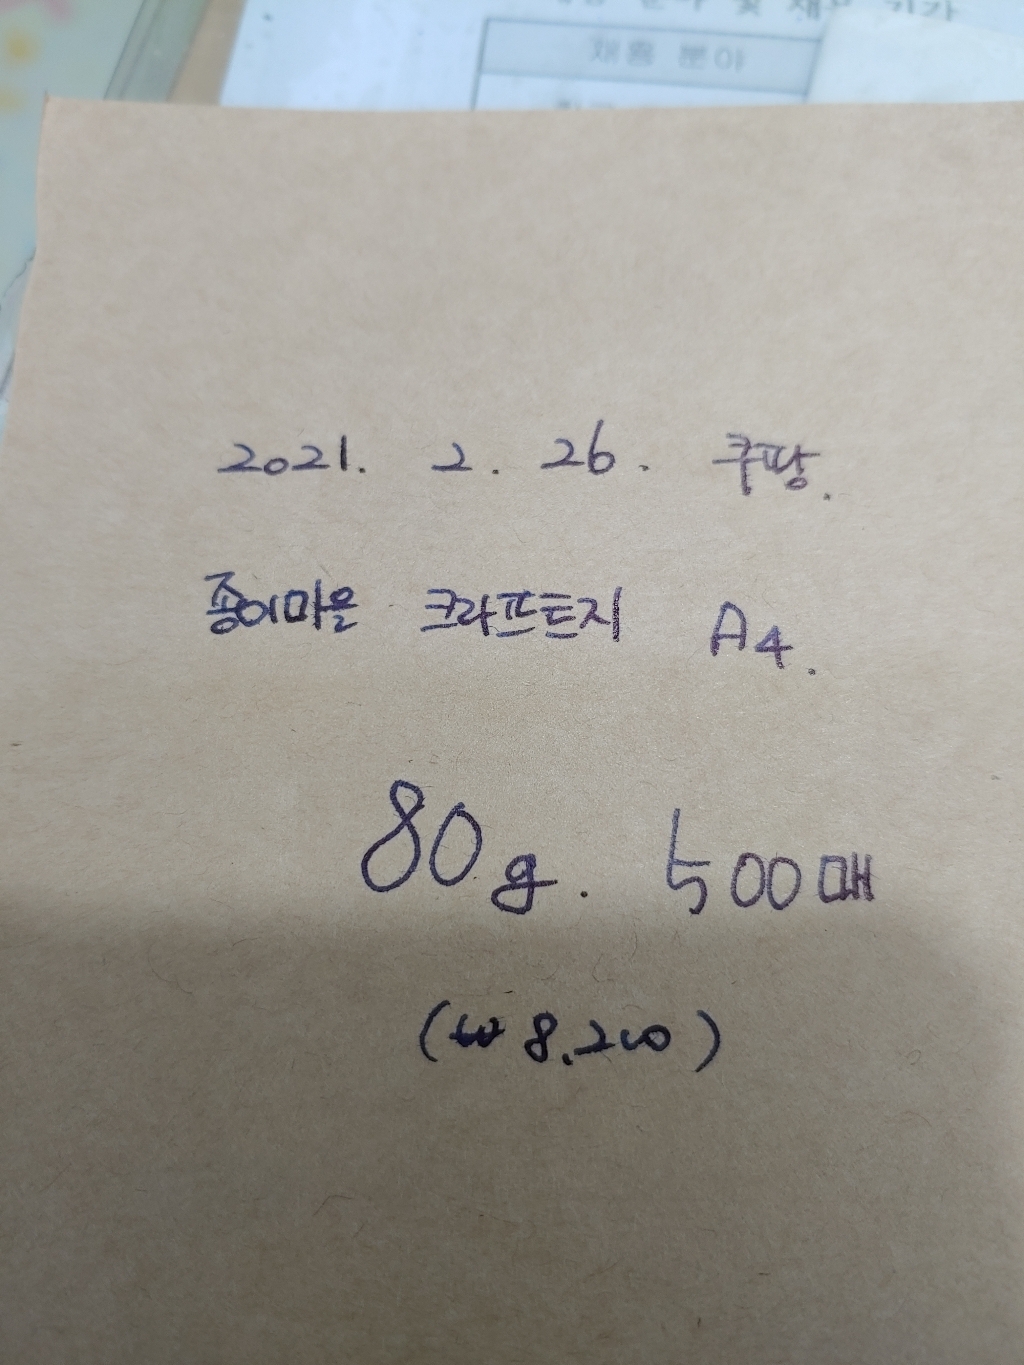 채용 분야
2021. 2. 26. 쿠팡.
종이마을 크라프트지 A4.
80g. 500매
(₩8,200)